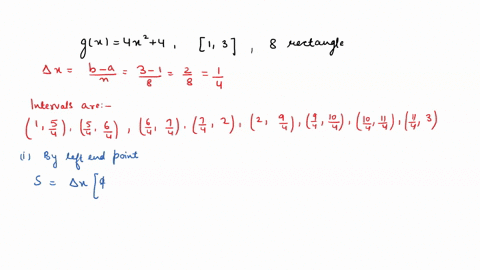 g(x) = 4x² + 4 , [1, 3] , 8 rectangle
Δx = b-a/n = 3-1/8 = 2/8 = 1/4
Intervals are:-
(1, 5/4), (5/4, 6/4), (6/4, 7/4), (7/4, 2), (2, 9/4), (9/4, 10/4), (10/4, 11/4), (11/4, 3)
(i) By left end point
S = Δx [